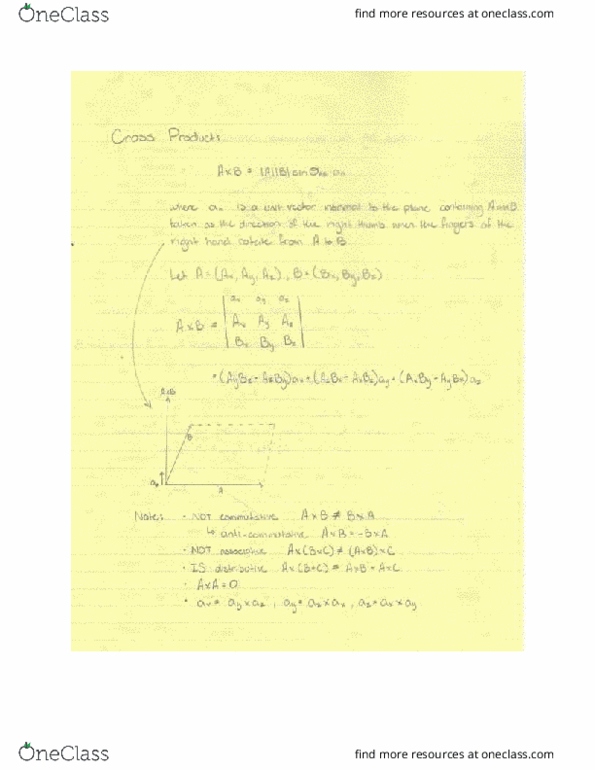 OneClass
find more resources at oneclass.com
Cross Products
A×B = |A||B| sin θ_AB a_n
where a_n is a unit vector normal to the plane containing A and B
taken as the direction of the right thumb when the fingers of the
right hand rotate from A to B
Let A = (Ax, Ay, Az), B = (Bx, By, Bz)
ax ay az
A×B = | Ax Ay Az |
Bx By Bz
= (AyBz - AzBy)ax + (AzBx - AxBz)ay + (AxBy - AyBx)az
A×B
B
an
A
Note: • NOT commutative A×B ≠ B×A
↳ anti-commutative A×B = -B×A
• NOT associative A×(B×C) ≠ (A×B)×C
• IS distributive A×(B+C) = A×B + A×C
• A×A = 0
• ax = ay × az, ay = az × ax, az = ax × ay
OneClass
find more resources at oneclass.com